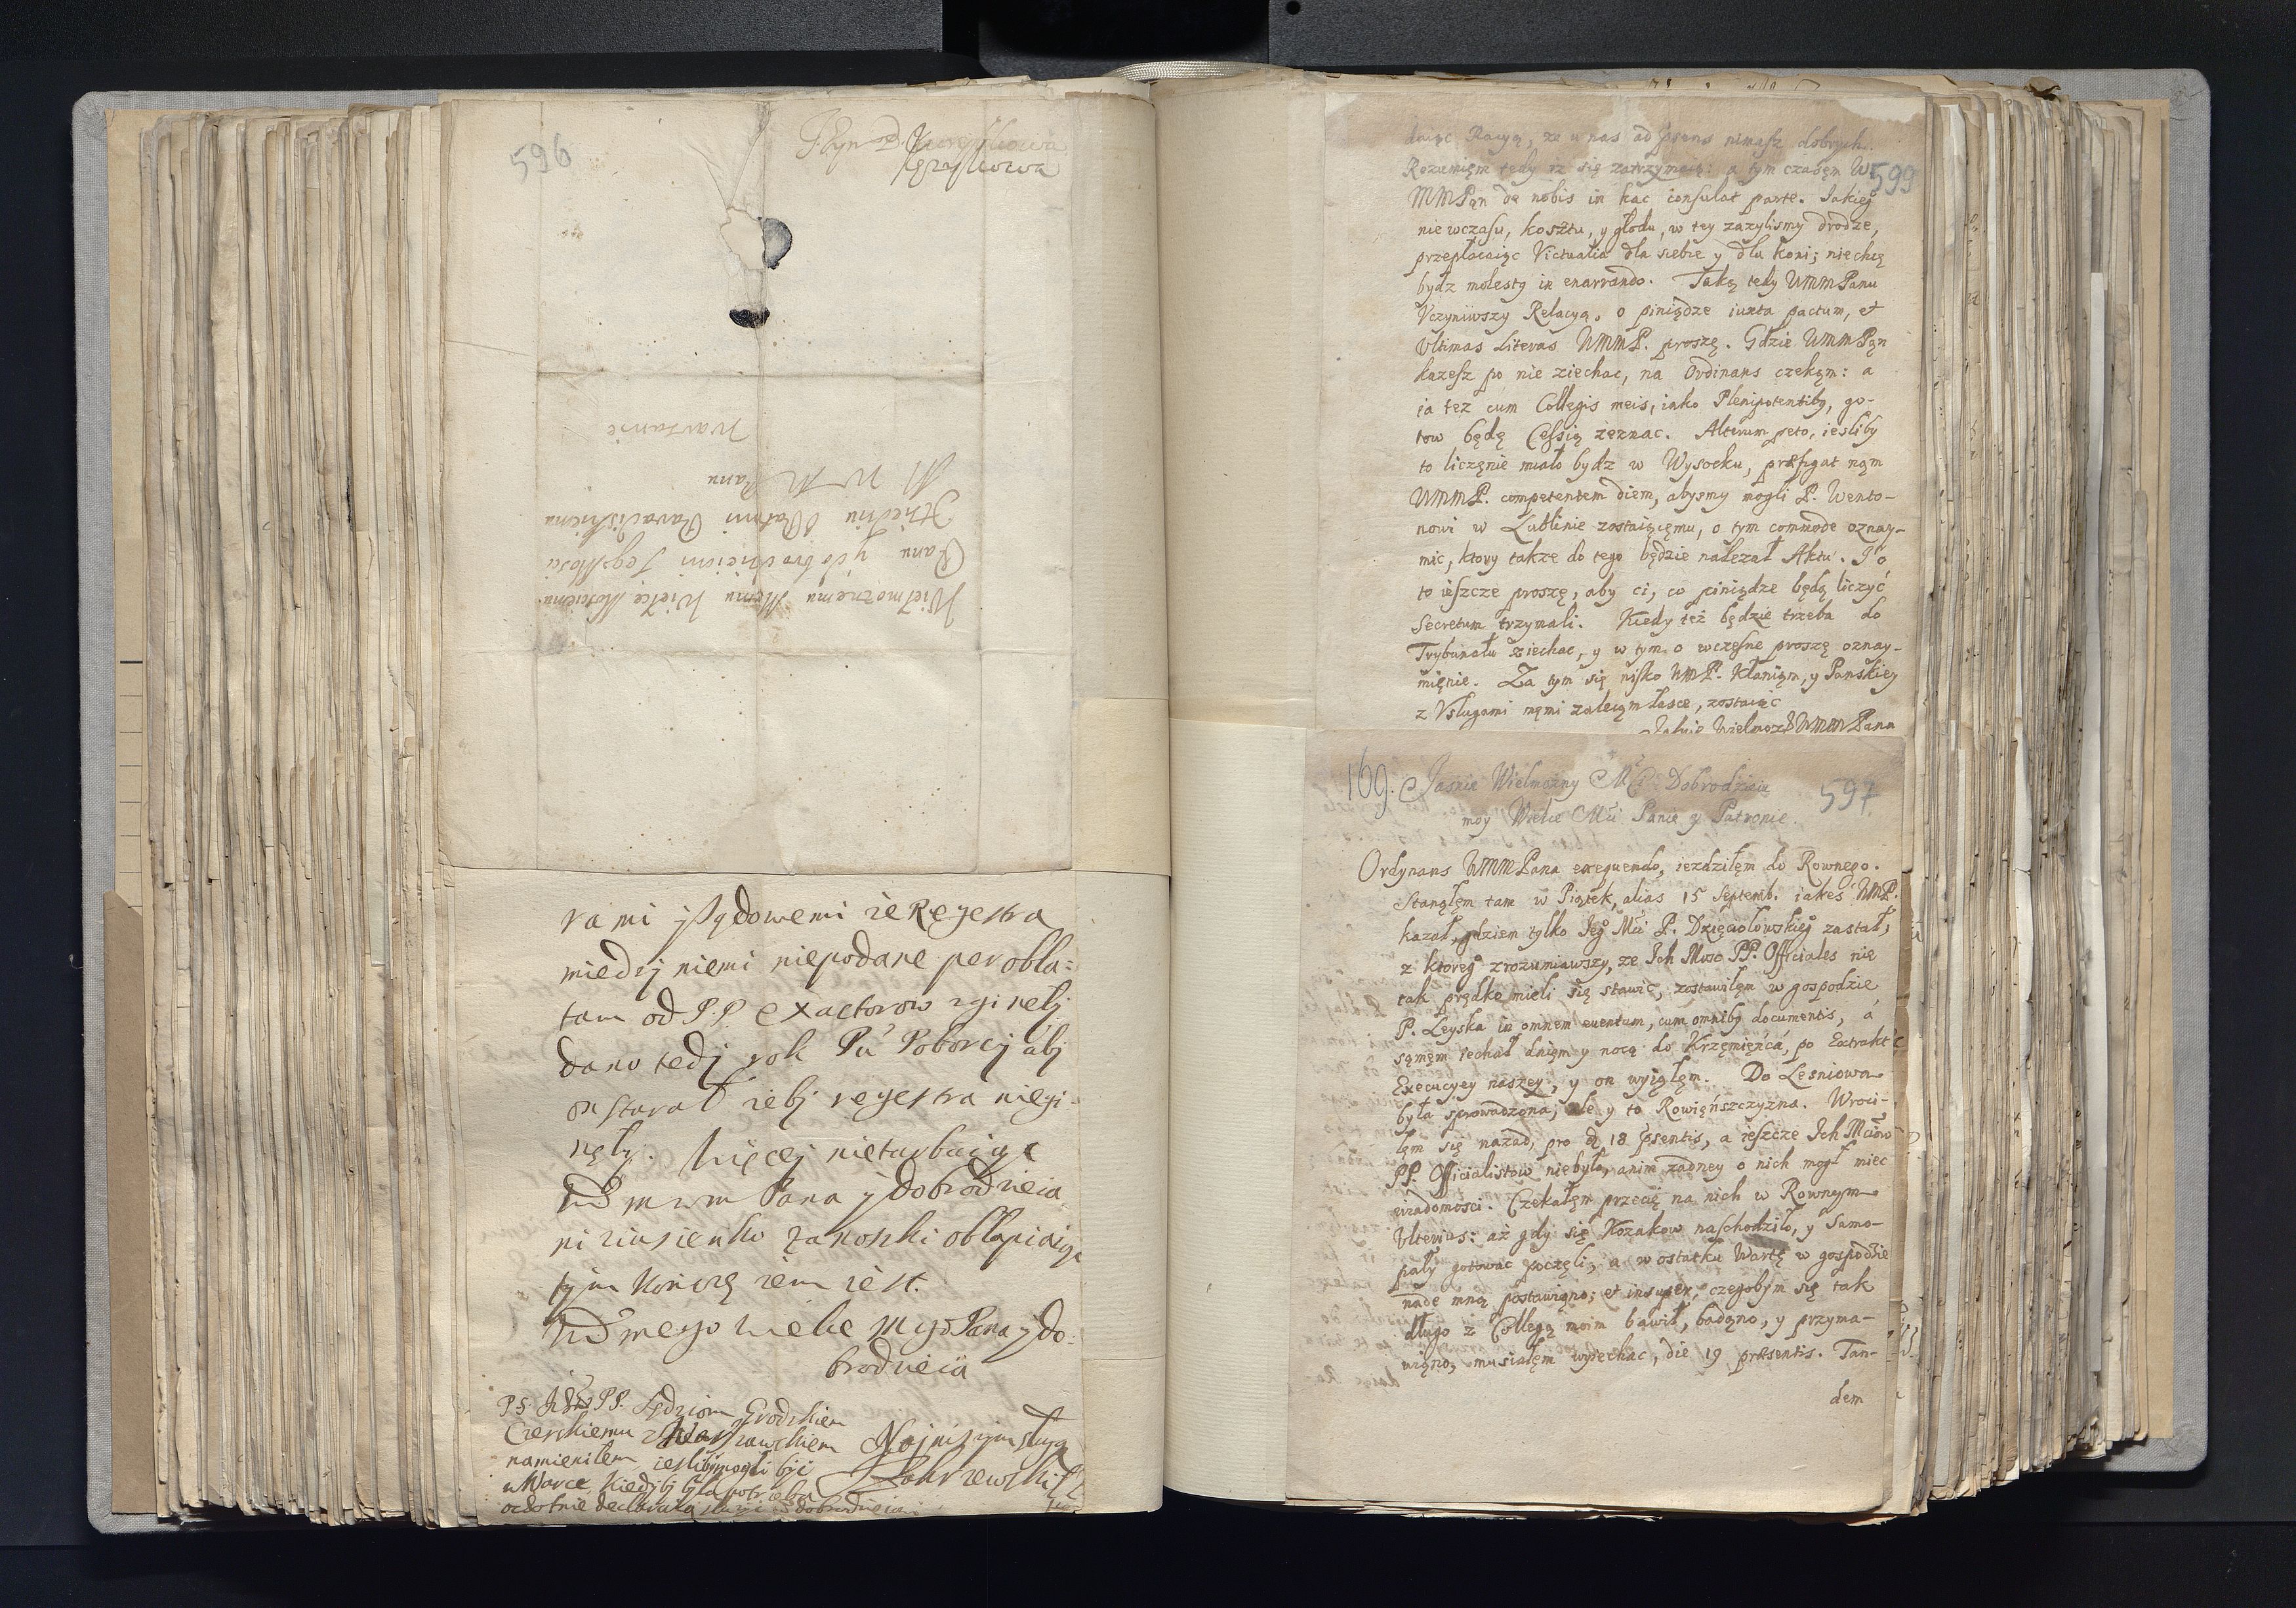 596
Wielmoznemu Memu Wielce Mosciemu
Panu y dobrodzieiowi Jegomosci
M W M Panu
Warszawie
rami ySądowemi ze Regestra
miedzy niemi niepodane per obla:
tam od P.P. exactorow zgineły
dano tedy rok Pu Poborcy aby
on starał zeby regestra niegi:
neły. Więcey nieturbuiąc
WM m w m Pana y dobrodzieia
niziusienko za noszki obłapiaiąc
tym koncze zem iest.
WM mego wielce mego Pana y do:
brodzieia
PS. PP. Sędziom Grodzkiem
Czerskiemu z Warszawskiem
namieniłem iesliby mogli byc
w Warce kiedyby była potrzeba
ochotnie declaruią
Nayniszym sługą
Zakrzewski
599
daiąc Racyą, ze u nas ad psens nimasz dobrych.
Rozumięm tedy iz się zatrzymaią: a tym czasęm W
MMPan de nobis in hac consulat parte. Jakieg
niewczasu, kosztu, y głodu, w tey zazylismy drodze,
przepłacaiąc Victualia dla siebie y dla koni; niechcę
bydz molesty in enarrando. Taką tedy WMMPanu
Vczyniwszy Relacyą, o piniądze iuxta pactum, et
Vltimas Literas WMMP. proszę. Gdzie WMMPan
kazesz po nie ziechac, na Ordinans czekąm: a
ia tez cum Collegis meis, iako Plenipotentiby, go-
tow będę Cessią zeznac. Alterum peto, iesliby
to liczęnie miało bydz w Wysocku, præfigat nąm
WMMP. competentem diem, abysmy mogli P. Wento-
nowi w Lublinie zostaiącęmu, o tym commode oznay-
mic, ktory takze do tego będzie nalezał Aktu. J o
to ieszcze proszę, aby ci, co piniądze będą liczyć
Secretum trzymali. Kiedy też będzie trzeba do
Trybunału ziechac, y w tym o wczesne proszę oznay-
mięnie. Za tym się nisko WMP. Kłaniąm, y Panskiey
z Vsługami męmi zalecąm łasce, zostaiąc
Jasnie Wielmoz WMMPana
169. Jasnie Wielmozny Mci Dobrodzieiu
597
moy Wielce Mci Panie y Patronie.
Ordynans WMMPana exequendo, iezdziłęm do Rownego.
Stanąłęm tam w Piątek, alias 15 Septemb. iakes WMP.
kazał, gdziem tylko Jeg Mci P. Dzięciołowskieg zastał;
z ktoreg zrozumiawszy, ze Ich Msco PP. Officiales nie
tak prędko mieli się stawic, zostawiłęm w gospodzie
P. Leyska in omnem euentum, cum omniby documentis, a
sąmęm iechał dnięm y nocą do Krzęmięńca, po Extrakt
Execucyey naszey, y on wyiąłęm. Do Lesniowa
była sprowadzona; ale y to Rowięńszczyzna. Wroci-
łęm się nazad, pro d. 18 psentis, a ieszcze Ich Mciow
PP. Officialistow niebyło, anim zadney o nich mogł miec
wiadomosci. Czekałęm przecię na nich w Rownym
Vlterius: aż gdy się Kozakow naschodziło, y Samo-
pały gotowac poczęli, a w ostatku Wartę w gospodzie
nade mną postawiąno; et insuper, czegobym się tak
długo z Collegą moim bawił, badąno, y przyma-
wiąno, musiałęm wyiechac, die 19 præsentis. Tan-
dem